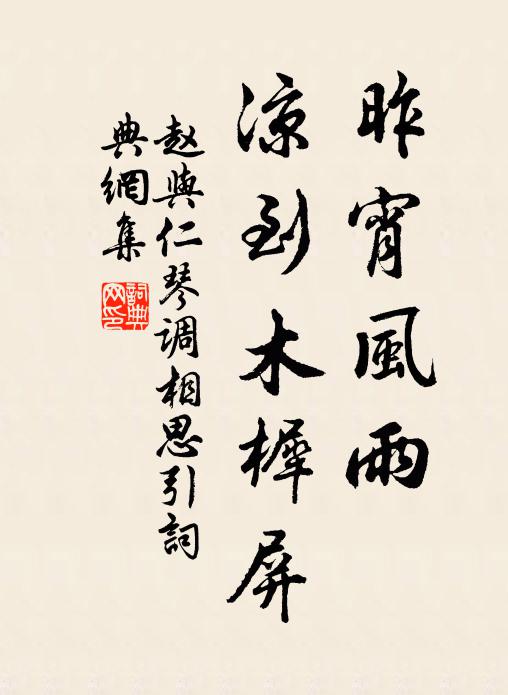 昨宵風雨
凉到木樨屏
赵與仁琴调相思引詞
典網集
詞典
网印